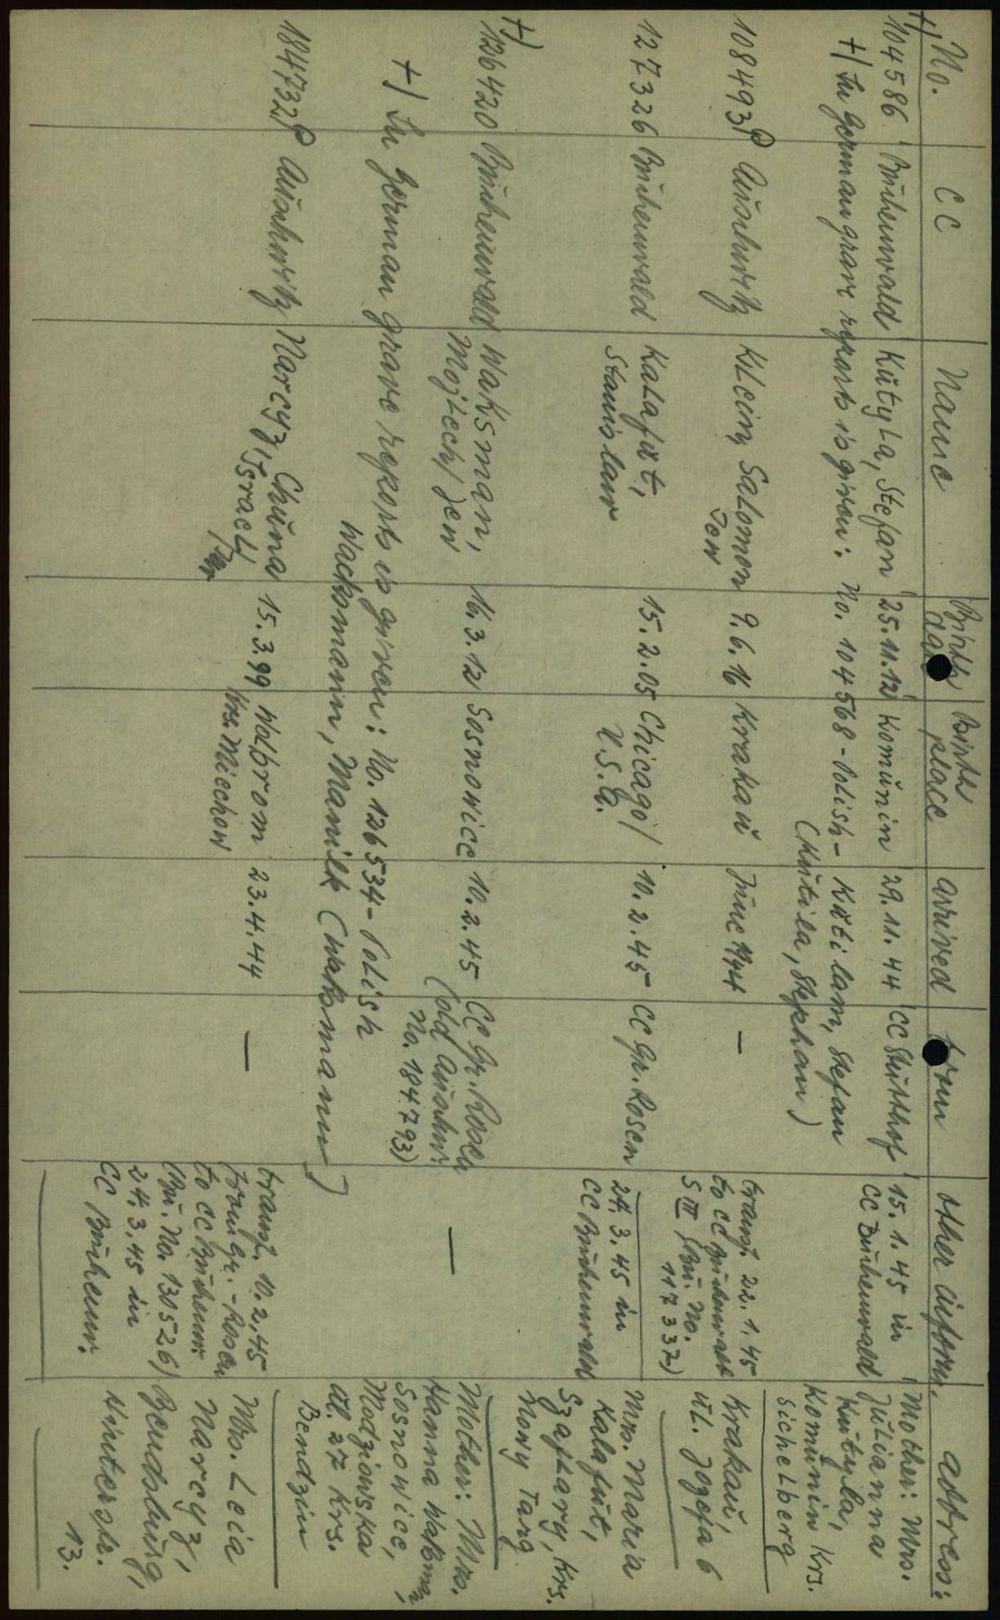 No. CC Name Birth date Birth place arrived from other inform. address:
+) 104586 Buchenwald Kutyła, Stefan 25.11.12 Komunin 29.11.44 CC Stutthof 15.1.45 in CC Buchenwald Mother: Mrs. Julianna Kutyla, Komunin Krs. Sichelberg
+) In german grave reports is given: No. 104568 - Polish - Kutilam, Stefan
(Kutila, Stephan)
108493? Auschwitz KLein, Salomon Jew 9.6.16 Krakau June 1944 - transf. 22.1.45 to CC Buchenwald S III (Bu. No. 117337) Krakau, ul. Jozefa 6
127326 Buchenwald Kalafut, Stanislaw 15.2.05 Chicago/ U.S.A. 10.2.45 CC Gr. Rosen 24.3.45 in CC Buchenwald Mrs. Maria Kalafut, Szaflary, Krs. Nowy Targ
+) 126420 Buchenwald Waksman, Mojzech/ Jew 16.3.12 Sosnowice 10.2.45 CC Gr. Rosen (old Auschw. No. 184793) - Mother: Mrs. Hanna Waksman, Sosnowice, Modziowska ul. 27 Krs. Bendzin
+) In German grave reports is given: No. 126534 - Polish
Wachsmann, Manilk (Waksmann)
184732? Auschwitz Narcyz, Chuna Israel, 15.3.99 Wolbrom Krs. Miechow 23.4.44 - transf. 10.2.45 from Gr.-Rosen to CC Buchenw. (Bu. No. 130526) 24.3.45 in CC Buchenw. Mrs. Leia Narcyz, Bendsburg, Hinterstr. 13.